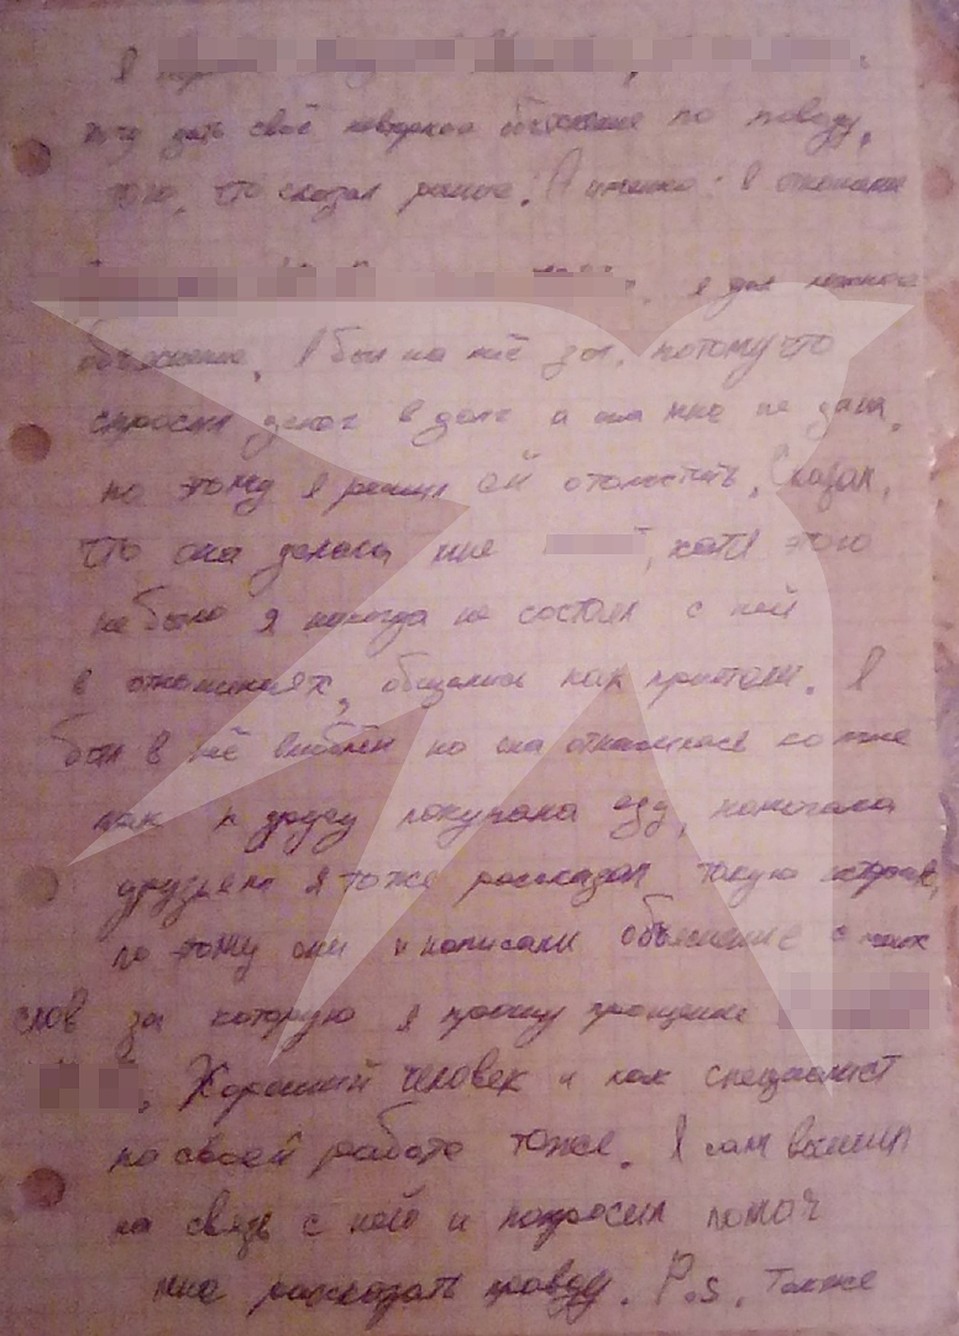 Я
хочу дать своё повторное объяснение по поводу,
того, что сказал ранее. А именно: в отношении
я дал ложное
объяснение. Я был на неё зол, потому что
спросил денег в долг а она мне не дала.
по этому я решил ей отомстить. Сказал,
что она делала мне , хотя этого
не было я никогда не состоял с ней
в отношениях, общались как приятели. Я
был в неё влюблён но она относилась ко мне
как к другу покупала еду, помогала
друзьям я тоже рассказал такую историю,
по тому они и написали объяснение с моих
слов за которую я прошу прощение
Хороший человек и как специалист
по своей работе тоже. Я сам вышел
на связь с ней и попросил помоч
мне рассказать правду. P.s. Также